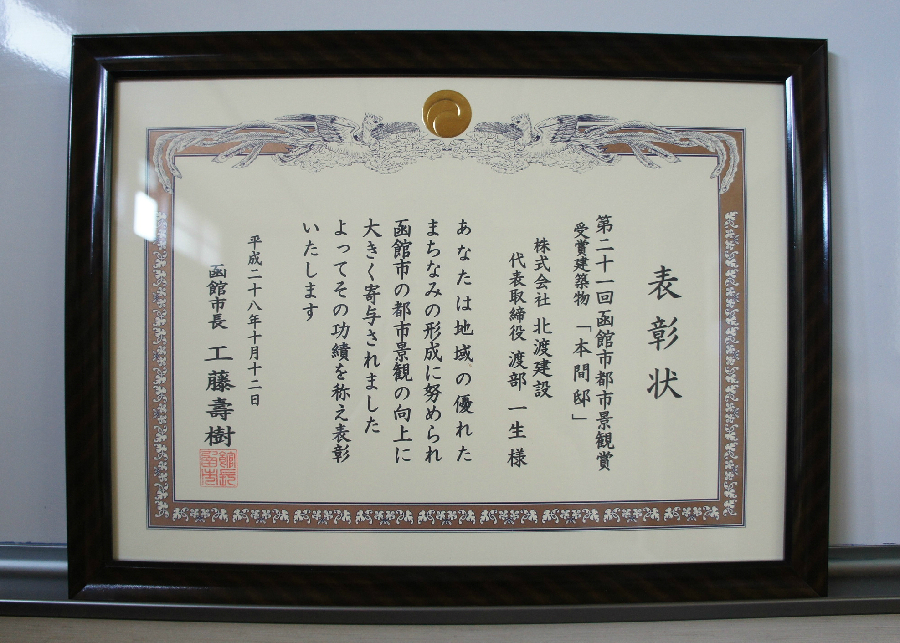 表彰状
第二十一回函館市都市景観賞
受賞建築物「本間邸」
株式会社 北渡建設
代表取締役 渡部 一生 様
あなたは地域の優れた
まちなみの形成に努められ
函館市の都市景観の向上に
大きく寄与されました
よってその功績を称え表彰
いたします
平成二十八年十月十二日
函館市長 工藤壽樹